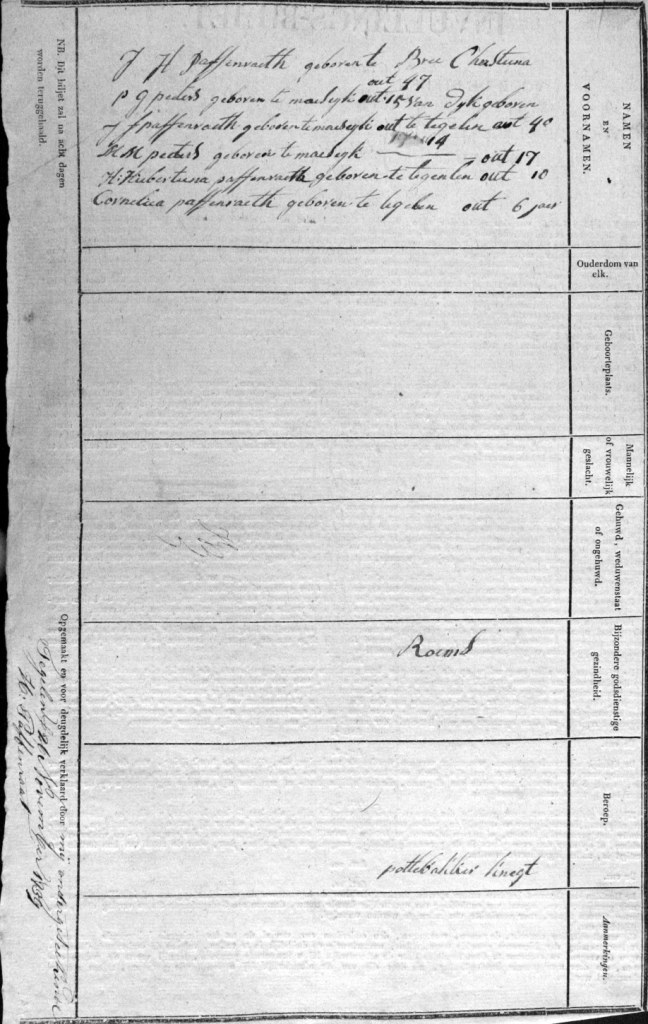 NAMEN
EN
VOORNAMEN.
J H paffenraeth geboren te Bree Cherstiina
out 47
p g peeters geboren te maeseyk out 15 van dyk geboren
J f paffenraeth geboren te maeseyk out te tegelen out 40
17 14
H M peeters geboren te maeseyk out 17
H: Hubertiina paffenraeth geboren te tegenlen out 10
Cornelia paffenraeth geboren te tegelen out 6 jaer
Ouderdom van
elk.
Geboorteplaats.
Mannelijk
of vrouwelijk
geslacht.
Gehuwd, weduwenstaat
of ongehuwd.
Bijzondere godsdienstige
gezindheid.
Rooms
Beroep.
pottebakkers knegt
Aanmerkingen.
NB. Dit biljet zal na acht dagen
worden teruggehaald.
Opgemaakt en voor deugdelijk verklaard door mij ondergeteekende
Tegelen November 1839
H: Paffenraat